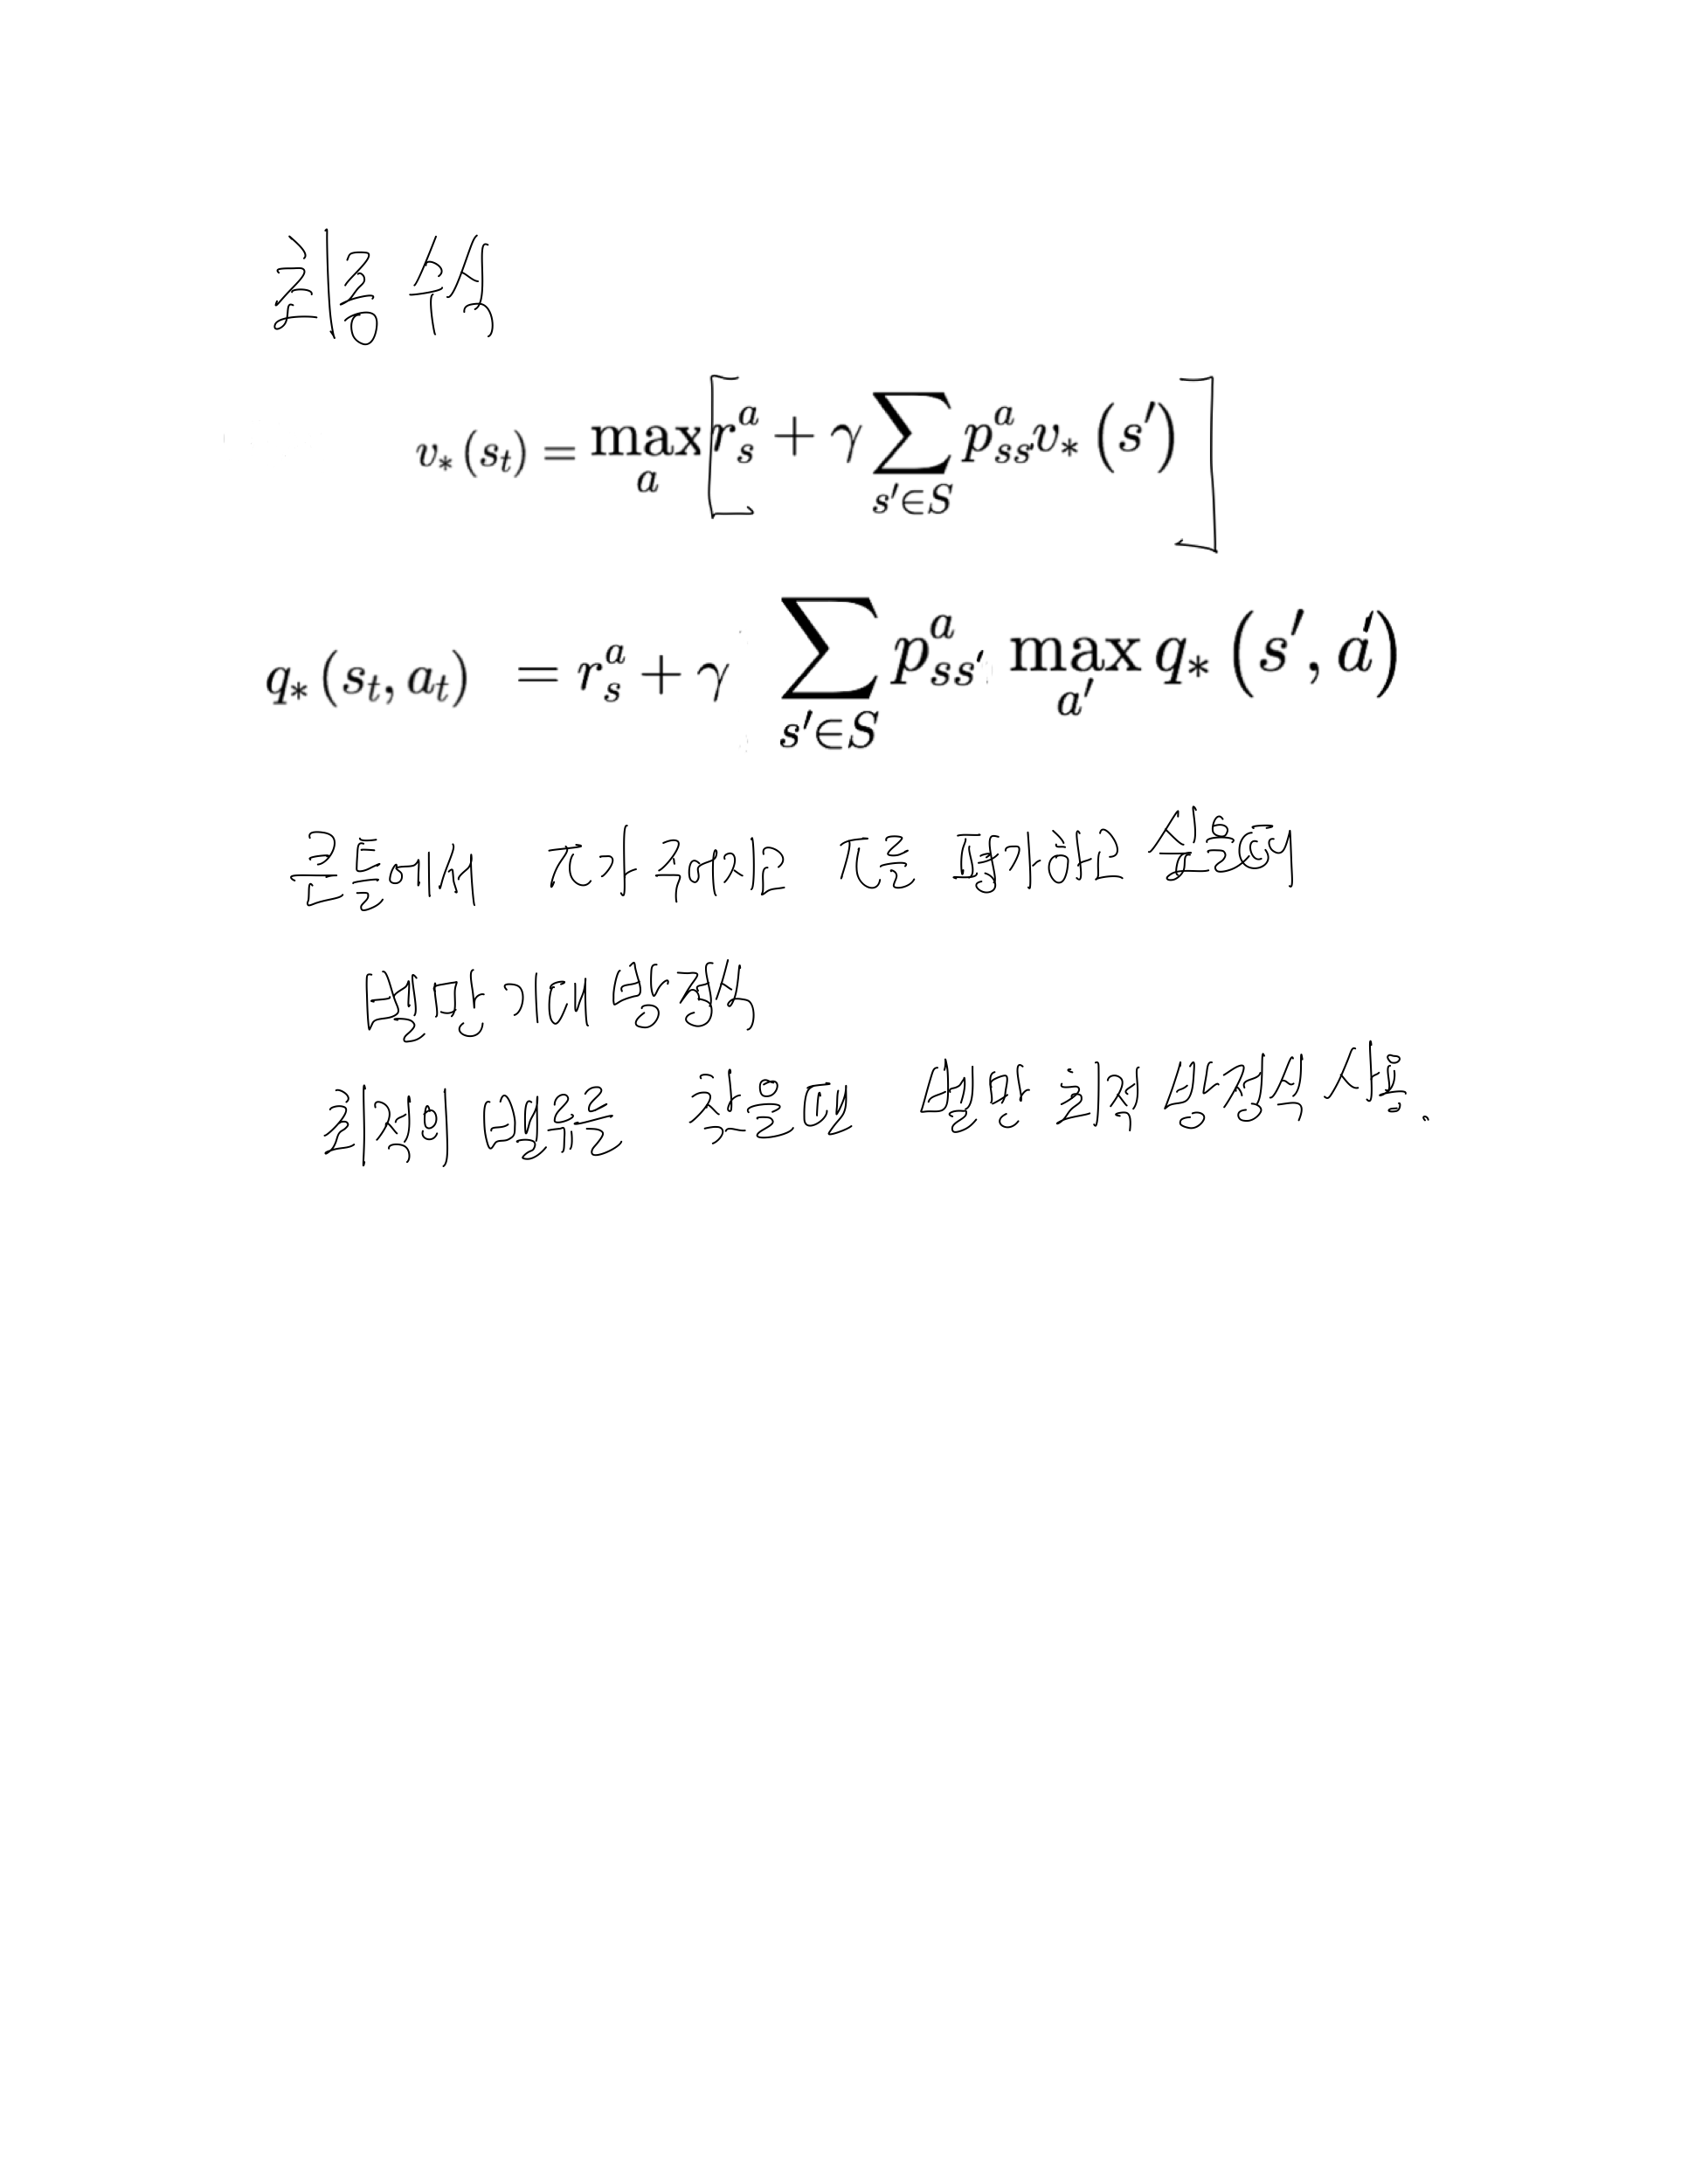 최종 수식
v_*(s_t) = max_a [r_s^a + γ ∑_{s'∈S} p_{ss'}^a v_*(s')]
q_*(s_t, a_t) = r_s^a + γ ∑_{s'∈S} p_{ss'}^a max_{a'} q_*(s', a')
큰틀에서 π가 주어지고 π를 평가하고 싶을때
벨만 기대 방정식
최적의 밸류를 찾을땐 벨만 최적 방정식 사용.